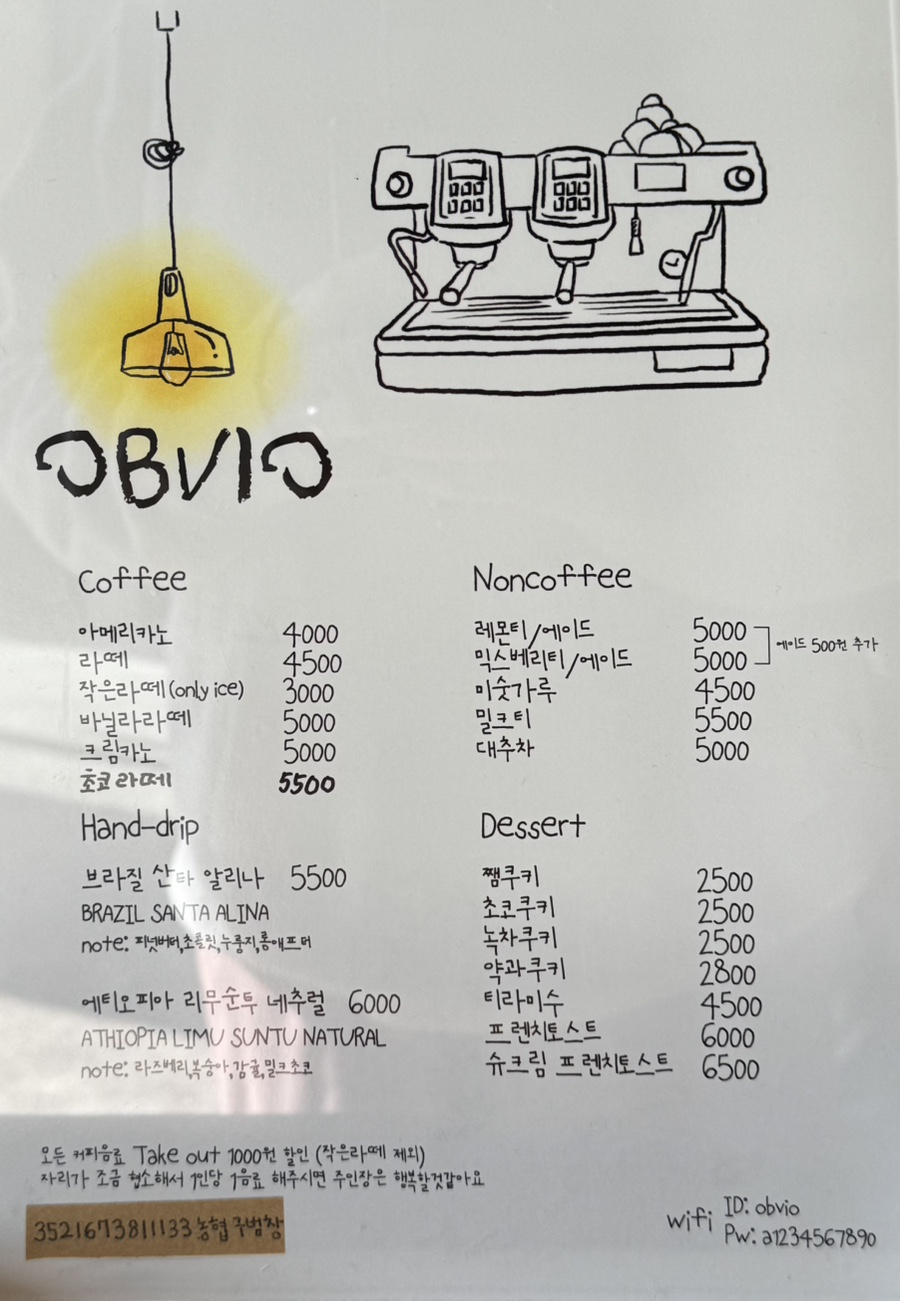 OBVIO
Coffee
아메리카노 4000
라떼 4500
작은라떼(only ice) 3000
바닐라라떼 5000
크림카노 5000
초코라떼 5500
Noncoffee
레몬티/에이드 5000
믹스베리티/에이드 5000
에이드 500원 추가
미숫가루 4500
밀크티 5500
대추차 5000
Hand-drip
브라질 산타 알리나 5500
BRAZIL SANTA ALINA
note: 피넛버터,초콜릿,누룽지,롱애프터
에티오피아 리무순투 네추럴 6000
ATHIOPIA LIMU SUNTU NATURAL
note: 라즈베리,복숭아,감귤,밀크초코
Dessert
쨈쿠키 2500
초코쿠키 2500
녹차쿠키 2500
약과쿠키 2800
티라미수 4500
프렌치토스트 6000
슈크림 프렌치토스트 6500
모든 커피음료 Take out 1000원 할인 (작은라떼 제외)
자리가 조금 협소해서 1인당 1음료 해주시면 주인장은 행복할것같아요
3521673811133 농협 구범창
wifi ID: obvio
Pw: a1234567890